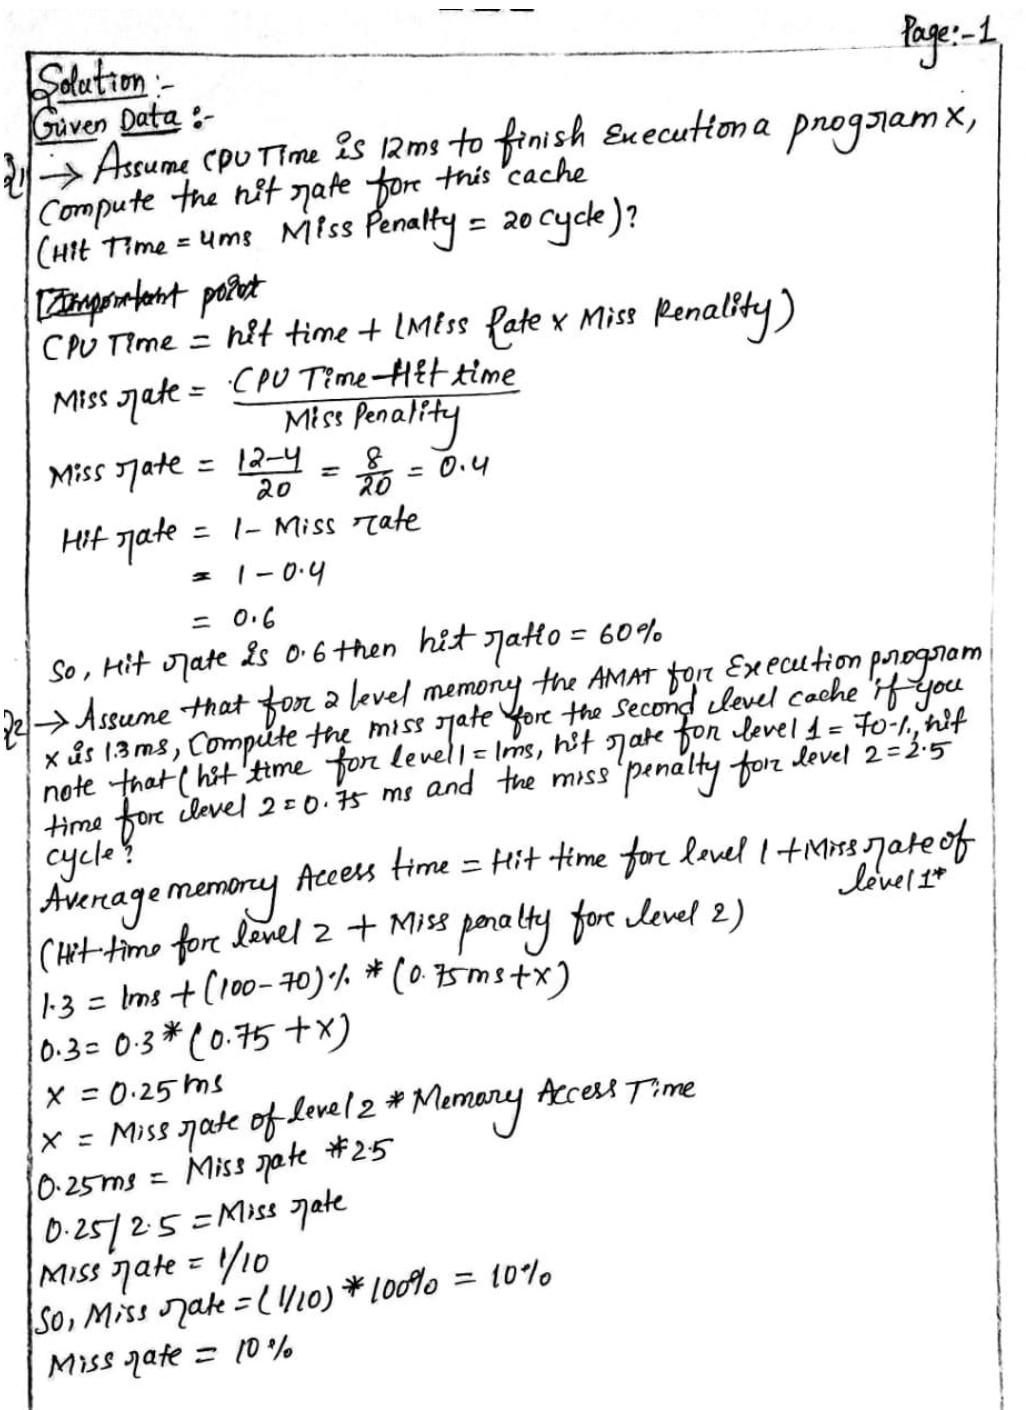 Page:-1
Solution :-
Given Data :-
Q1 → Assume CPU Time is 12ms to finish Execution a program x,
Compute the hit rate fore this cache
(Hit Time = 4ms Miss Penalty = 20 cycle)?
Important point
CPU Time = hit time + (Miss Rate x Miss Penality)
Miss rate = CPU Time-Hit time / Miss Penality
Miss rate = 12-4/20 = 8/20 = 0.4
Hit rate = 1- Miss rate
= 1-0.4
= 0.6
So, Hit rate is 0.6 then hit ratio = 60%
Q2 → Assume that for 2 level memory the AMAT for Execution program
x is 1.3ms, Compute the miss rate fore the second level cache if you
note that (hit time for level 1 = 1ms, hit rate for level 1 = 70%, hit
time fore level 2 = 0.75 ms and the miss penalty for level 2 = 2.5
cycle?
Average memory Access time = Hit time fore level 1 + Miss rate of
level 1*
(Hit time fore level 2 + Miss penalty fore level 2)
1.3 = 1ms + (100-70)% * (0.75ms+x)
0.3 = 0.3 * (0.75 +x)
x = 0.25ms
x = Miss rate of level 2 * Memory Access Time
0.25ms = Miss rate *2.5
0.25/2.5 = Miss rate
Miss rate = 1/10
So, Miss rate = (1/10) * 100% = 10%
Miss rate = 10%